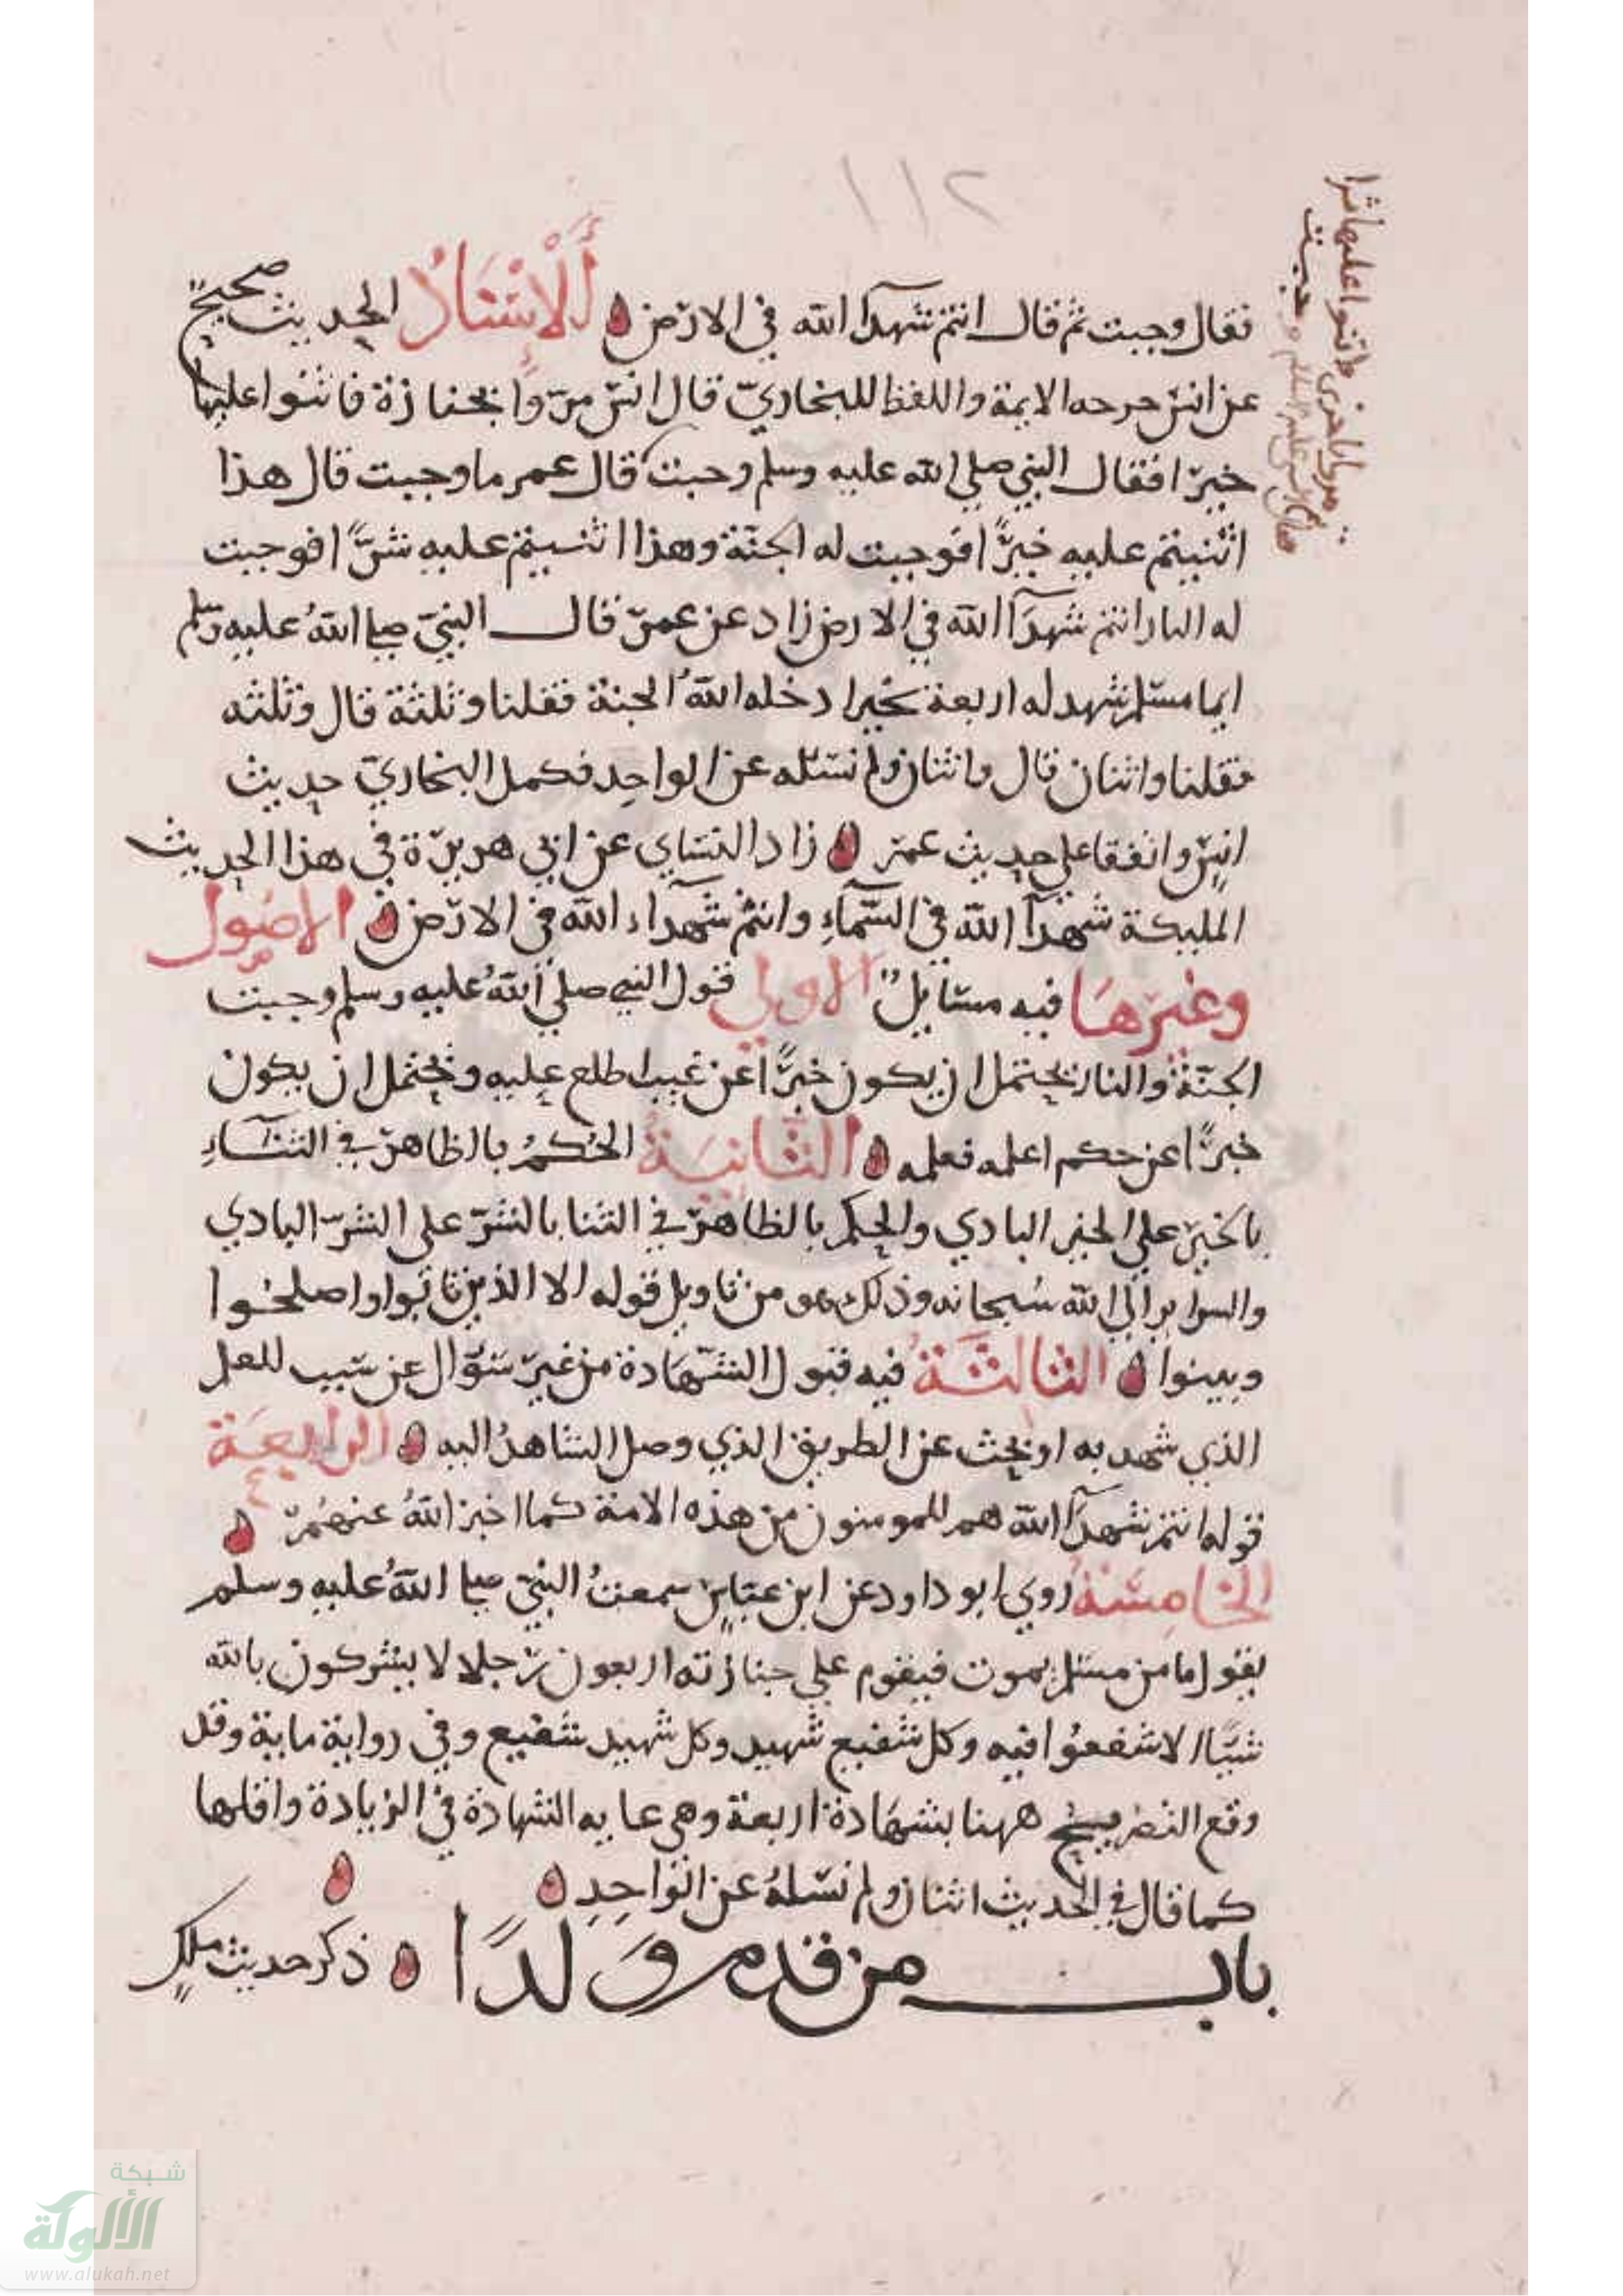 ١١٢
فقال وجبت ثم قال انتم شهدآ الله في الارض ۞ أَلْإِسْنَادُ الحديث صحيح
عن انس خرجه الايمة واللفظ للبخاري قال انس مرّوا بجنازة فاثنوا عليها
خيرا فقال النبي صلي الله عليه وسلم وجبت قال عمر ما وجبت قال هذا
اثنيتم عليه خيرًا فوجبت له الجنّة وهذا اثنيتم عليه شرًّا فوجبت
له النار انتم شهدآ الله في الارض زاد عن عمر قال النبي صلى اللهُ عليه وسلم
ايما مسلم شهد له اربعة بخير ادخله اللهُ الجنة فقلنا وثلثة قال وثلثه
فقلنا واثنان قال واثنان ولم نسئله عن الواحِد فكمل البخاري حديث
انس واتفقا علي حديث عمر ۞ زاد النساي عن ابي هريرة في هذا الحديث
المليكة شهدآ الله في السّمآءِ وانتم شهدآء الله في الارض ۞ الاصُول
وغيرهَا فيه مسَايل الاولي قول النبي صلي اللهُ عليه وسلم وجبت
الجنّة والنار يحتمل ان يكون خبرًا عن غيب اطلع عليه ويحتمل ان يكون
خبرًا عن حكم اعلمه فعلمه ۞ الثَّانِيَةُ الحُكمُ بالظاهر في الثنآءِ
بالخير علي الخير البادي والحكم بالظاهر في الثنا بالشر على الشر البادي
والسراير الي الله سُبحانه وذلك هو من تاويل قوله الا الذين تابوا واصلحُوا
وبينوا ۞ الثالثَةُ فيه قبول الشّهَادة من غير سَؤال عن سَبب للعلم
الذي شهد به او بحث عن الطريق الذي وصل الشاهدُ اليه ۞ الرابعَة
قوله انتم شهدآ الله هم المومنون من هذه الامة كما اخبر اللهُ عنهُمْ ۞
الخامِسَةُ روي ابو داود عن ابن عبّاس سمعتُ النبي صلى اللهُ عليه وسلم
يقول ما من مسلم يموت فيقوم علي جنازته اربعون رجلا لا يشركون بالله
شيّا الا شفعُوا فيه وكل شفيع شهيد وكل شهيد شفيع وفي رواية ماية وقد
وقع التصريح ههنا بشهَادة اربعة وهي غايه الشهادة في الزيادة واقلها
كما قال في الحديث اثنان ولم نسَلهُ عن الواحِدِ ۞ ۞
باب من قدم وَلدًا ۞ ذكر حديث ملكٍ
ثم مروا باخرى فاثنوا عليها شرا
فقال النبي عليه السلم وجبت
شبكة
الألوكة
www.alukah.net